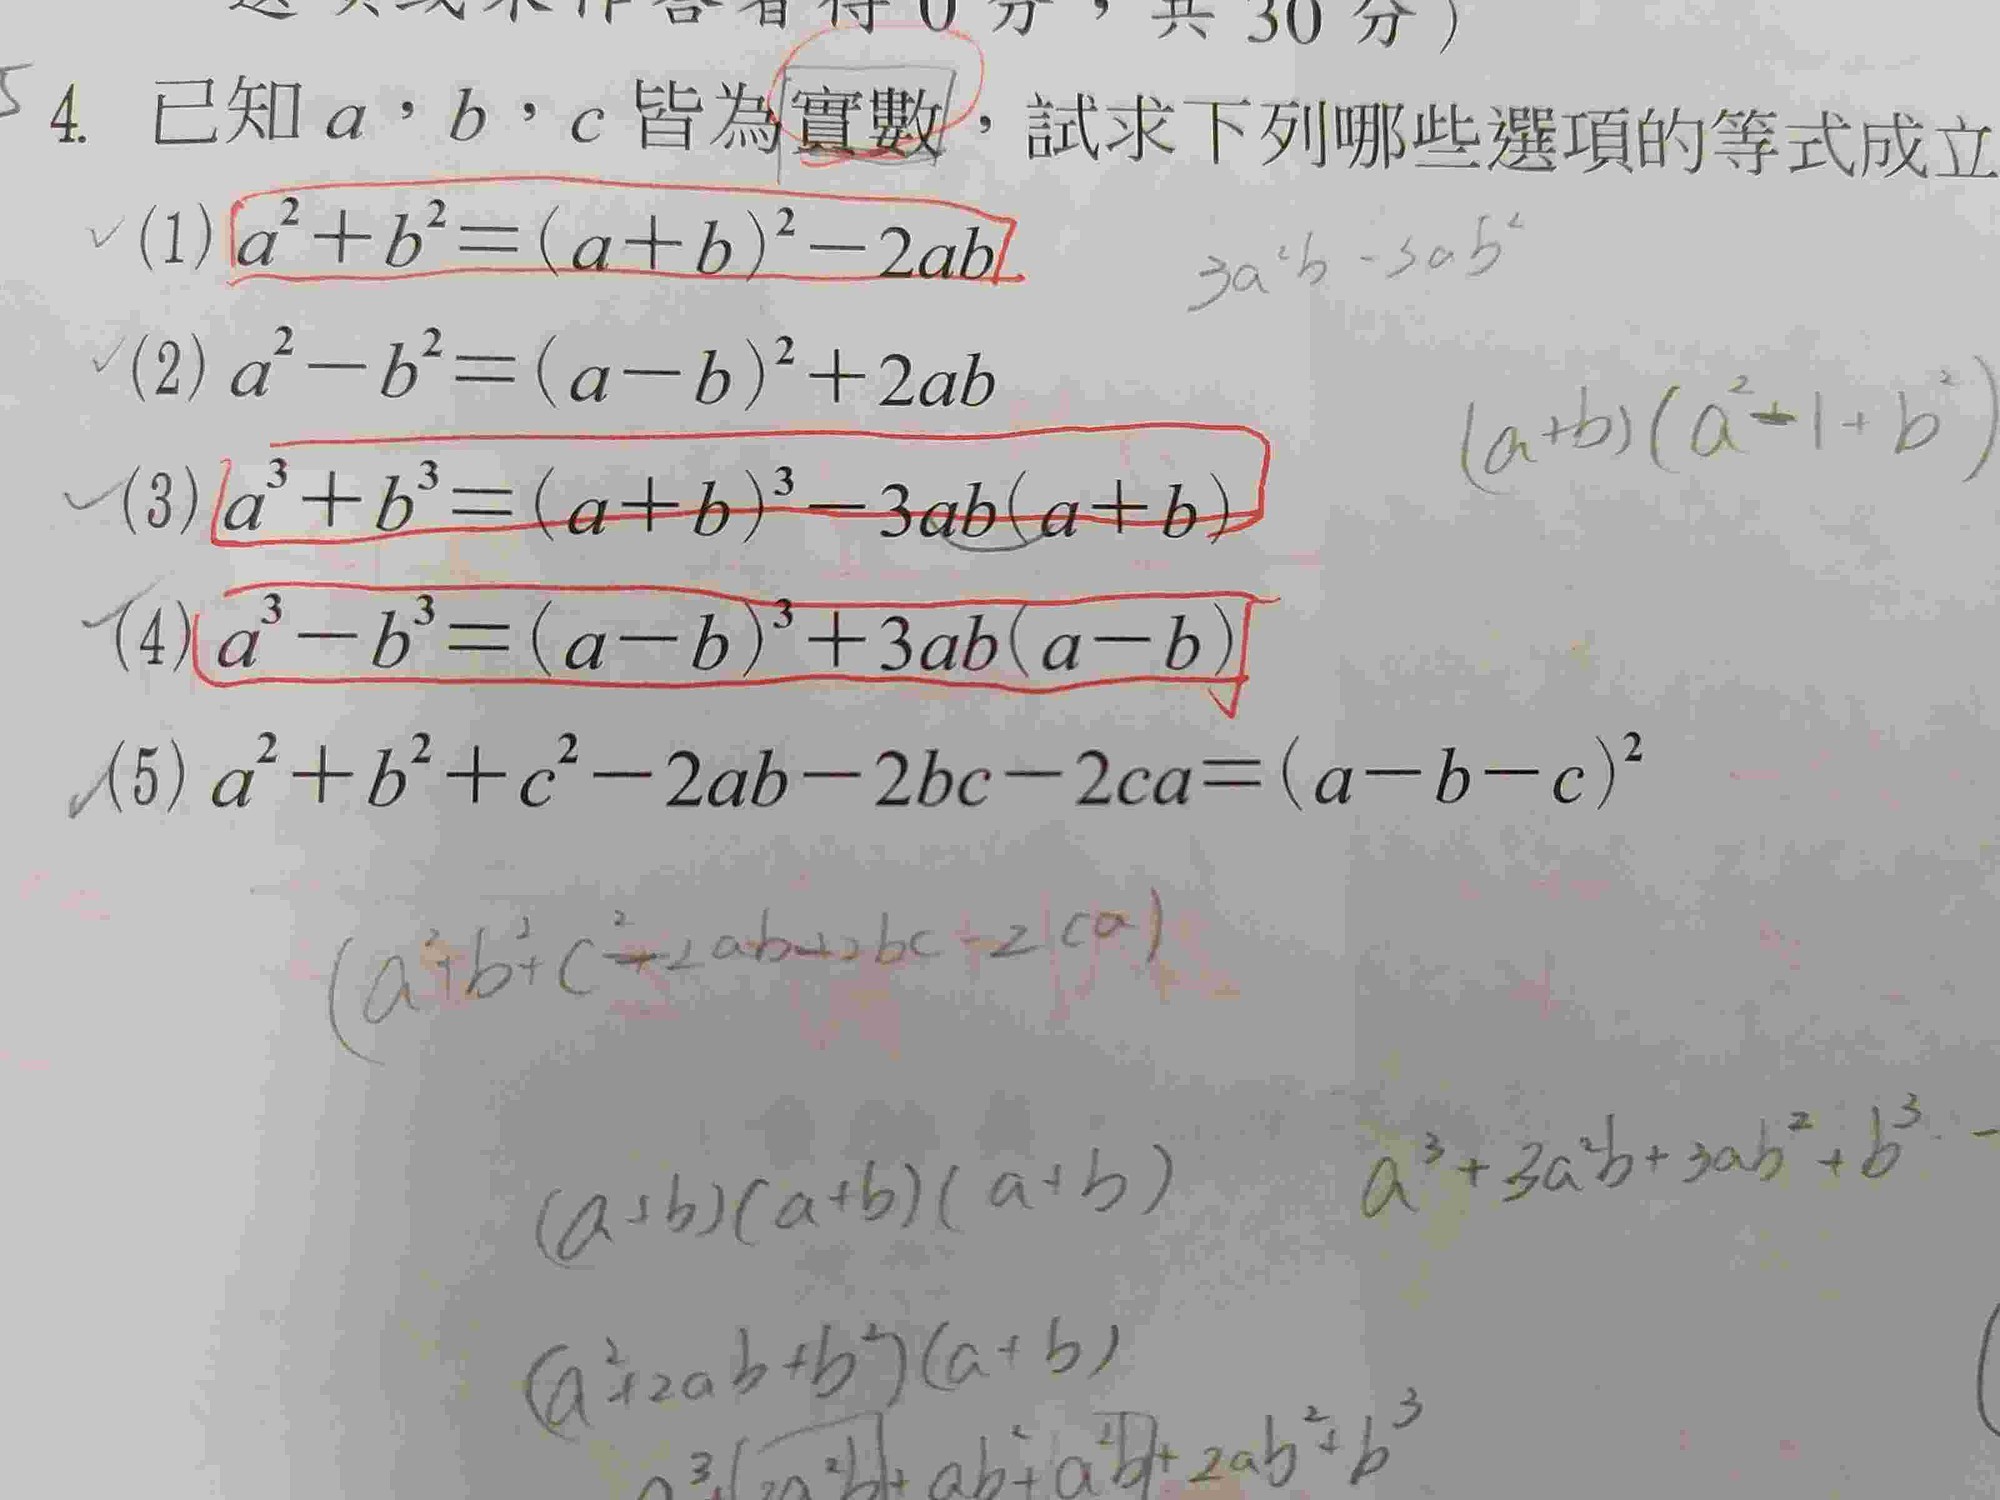 答者得0分，共30分）
4. 已知a，b，c皆為實數，試求下列哪些選項的等式成立
(1) a²+b²=(a+b)²-2ab
3a²b-3ab²
(2) a²-b²=(a-b)²+2ab
(a+b)(a²-1+b²)
(3) a³+b³=(a+b)³-3ab(a+b)
(4) a³-b³=(a-b)³+3ab(a-b)
(5) a²+b²+c²-2ab-2bc-2ca=(a-b-c)²
(a²+b²+c²-2ab+2bc-2ca)
(a+b)(a+b)(a+b)
a³+3a²b+3ab²+b³-
(a²+2ab+b²)(a+b)
a³+2a²b+ab²+a²b+2ab²+b³